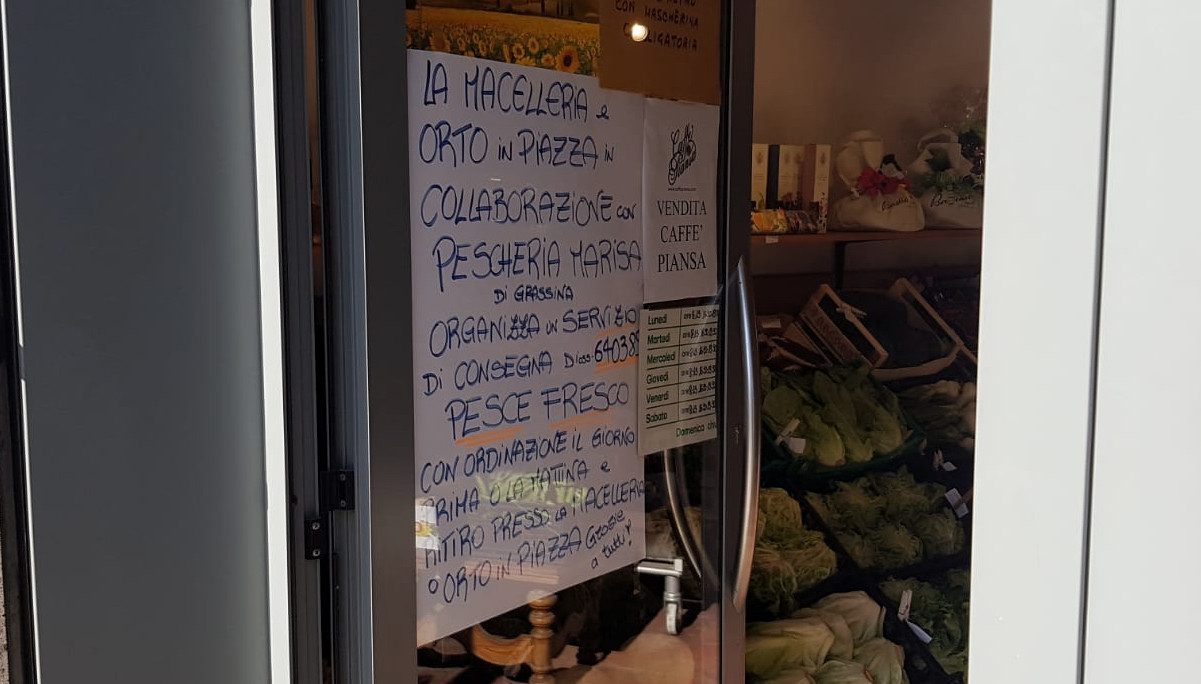 CON MASCHERINA
OBBLIGATORIA
LA MACELLERIA e
ORTO IN PIAZZA IN
COLLABORAZIONE CON
PESCHERIA MARISA
Di GRASSINA
ORGANIZZA UN SERVIZIO
Di CONSEGNA Di
PESCE FRESCO
CON ORDINAZIONE IL GIORNO
PRIMA O LA MATTINA e
RITIRO PRESSO LA MACELLERIA
o ORTO IN PIAZZA Grazie
a tutti!
Caffè
Piansa
VENDITA
CAFFE'
PIANSA
Lunedì
Martedì
Mercoledì
Giovedì
Venerdì
Sabato
Domenica